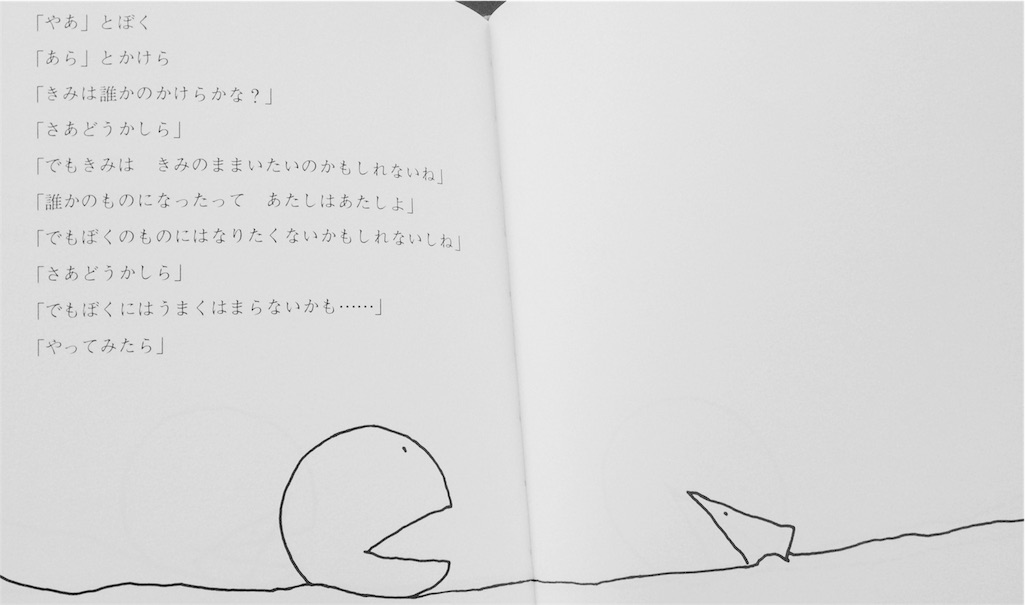 「やあ」とぼく
「あら」とかけら
「きみは誰かのかけらかな？」
「さあどうかしら」
「でもきみは　きみのままいたいのかもしれないね」
「誰かのものになったって　あたしはあたしよ」
「でもぼくのものにはなりたくないかもしれないしね」
「さあどうかしら」
「でもぼくにはうまくはまらないかも……」
「やってみたら」